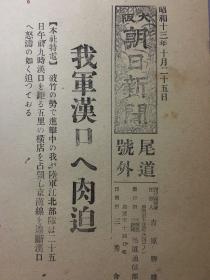 昭和十三年十月二十五日
大阪
朝日新聞
尾道
號外
我軍漢口へ肉迫
【本社特電】破竹の勢で進撃中の我が陸軍江北部隊は二十五
日午前九時漢口を距る五里の横店を占領し京漢線を遮斷漢口
へ怒濤の如く迫つてをる